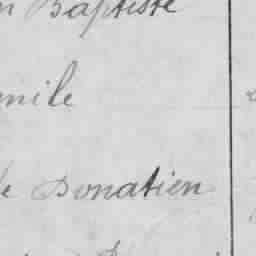 n Baptiste
mile
e Donatien